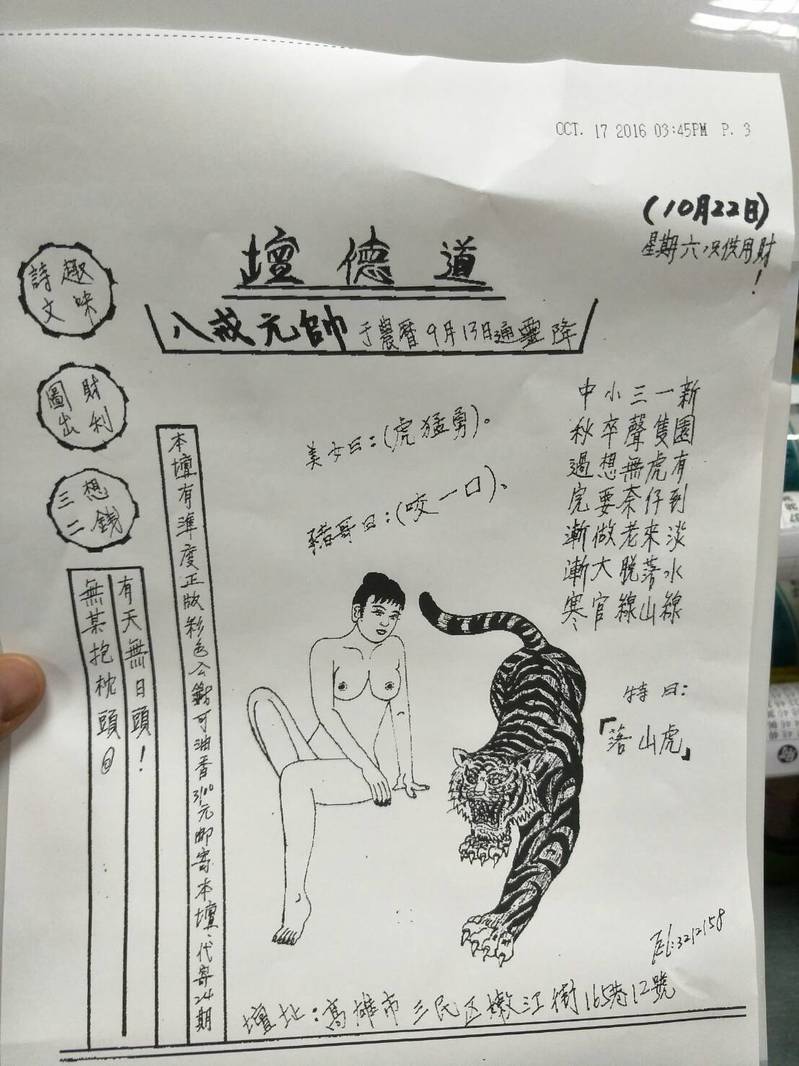 OCT. 17 2016 03:45PM P. 3
(10月22日)
星期六
!
道德壇
八戒元帥 于農曆9月13日通靈降
趣味
詩文
財利
圖出
想錢
三二
新園有到淡水線
一隻虎仔來落山
三聲無奈老脫線
小卒想要做大官
中秋過完漸漸寒
美女曰:(虎猛勇)。
豬哥曰:(咬一口)、
特曰:
「落山虎」
本壇有準度正版彩色
油香3100元郵寄本壇、代寄24期
有天無日頭!
無某抱枕頭
Tel:3212158
壇址:高雄市三民区嫩江街165巷12號